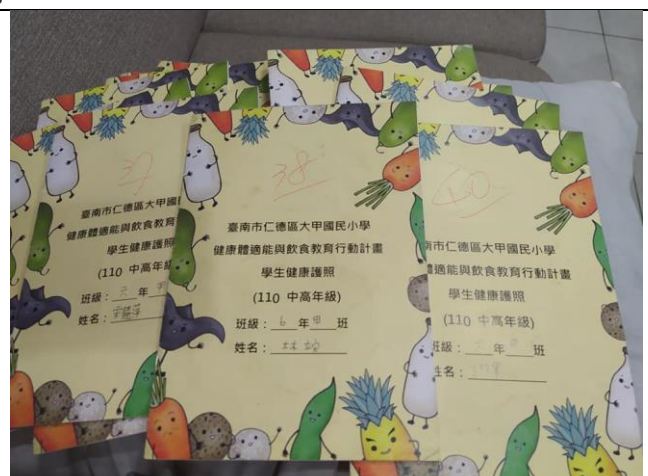 37
臺南市仁德區大甲國
健康體適能與飲食教育
學生健康護照
(110 中高年級
班級： 年
姓名：
38
臺南市仁德區大甲國民小學
健康體適能與飲食教育行動計畫
學生健康護照
(110 中高年級)
班級：6 年甲班
姓名：林
40
南市仁德區大甲國民小學
體適能與飲食教育行動計畫
學生健康護照
(110 中高年級)
班級： 年 班
姓名：